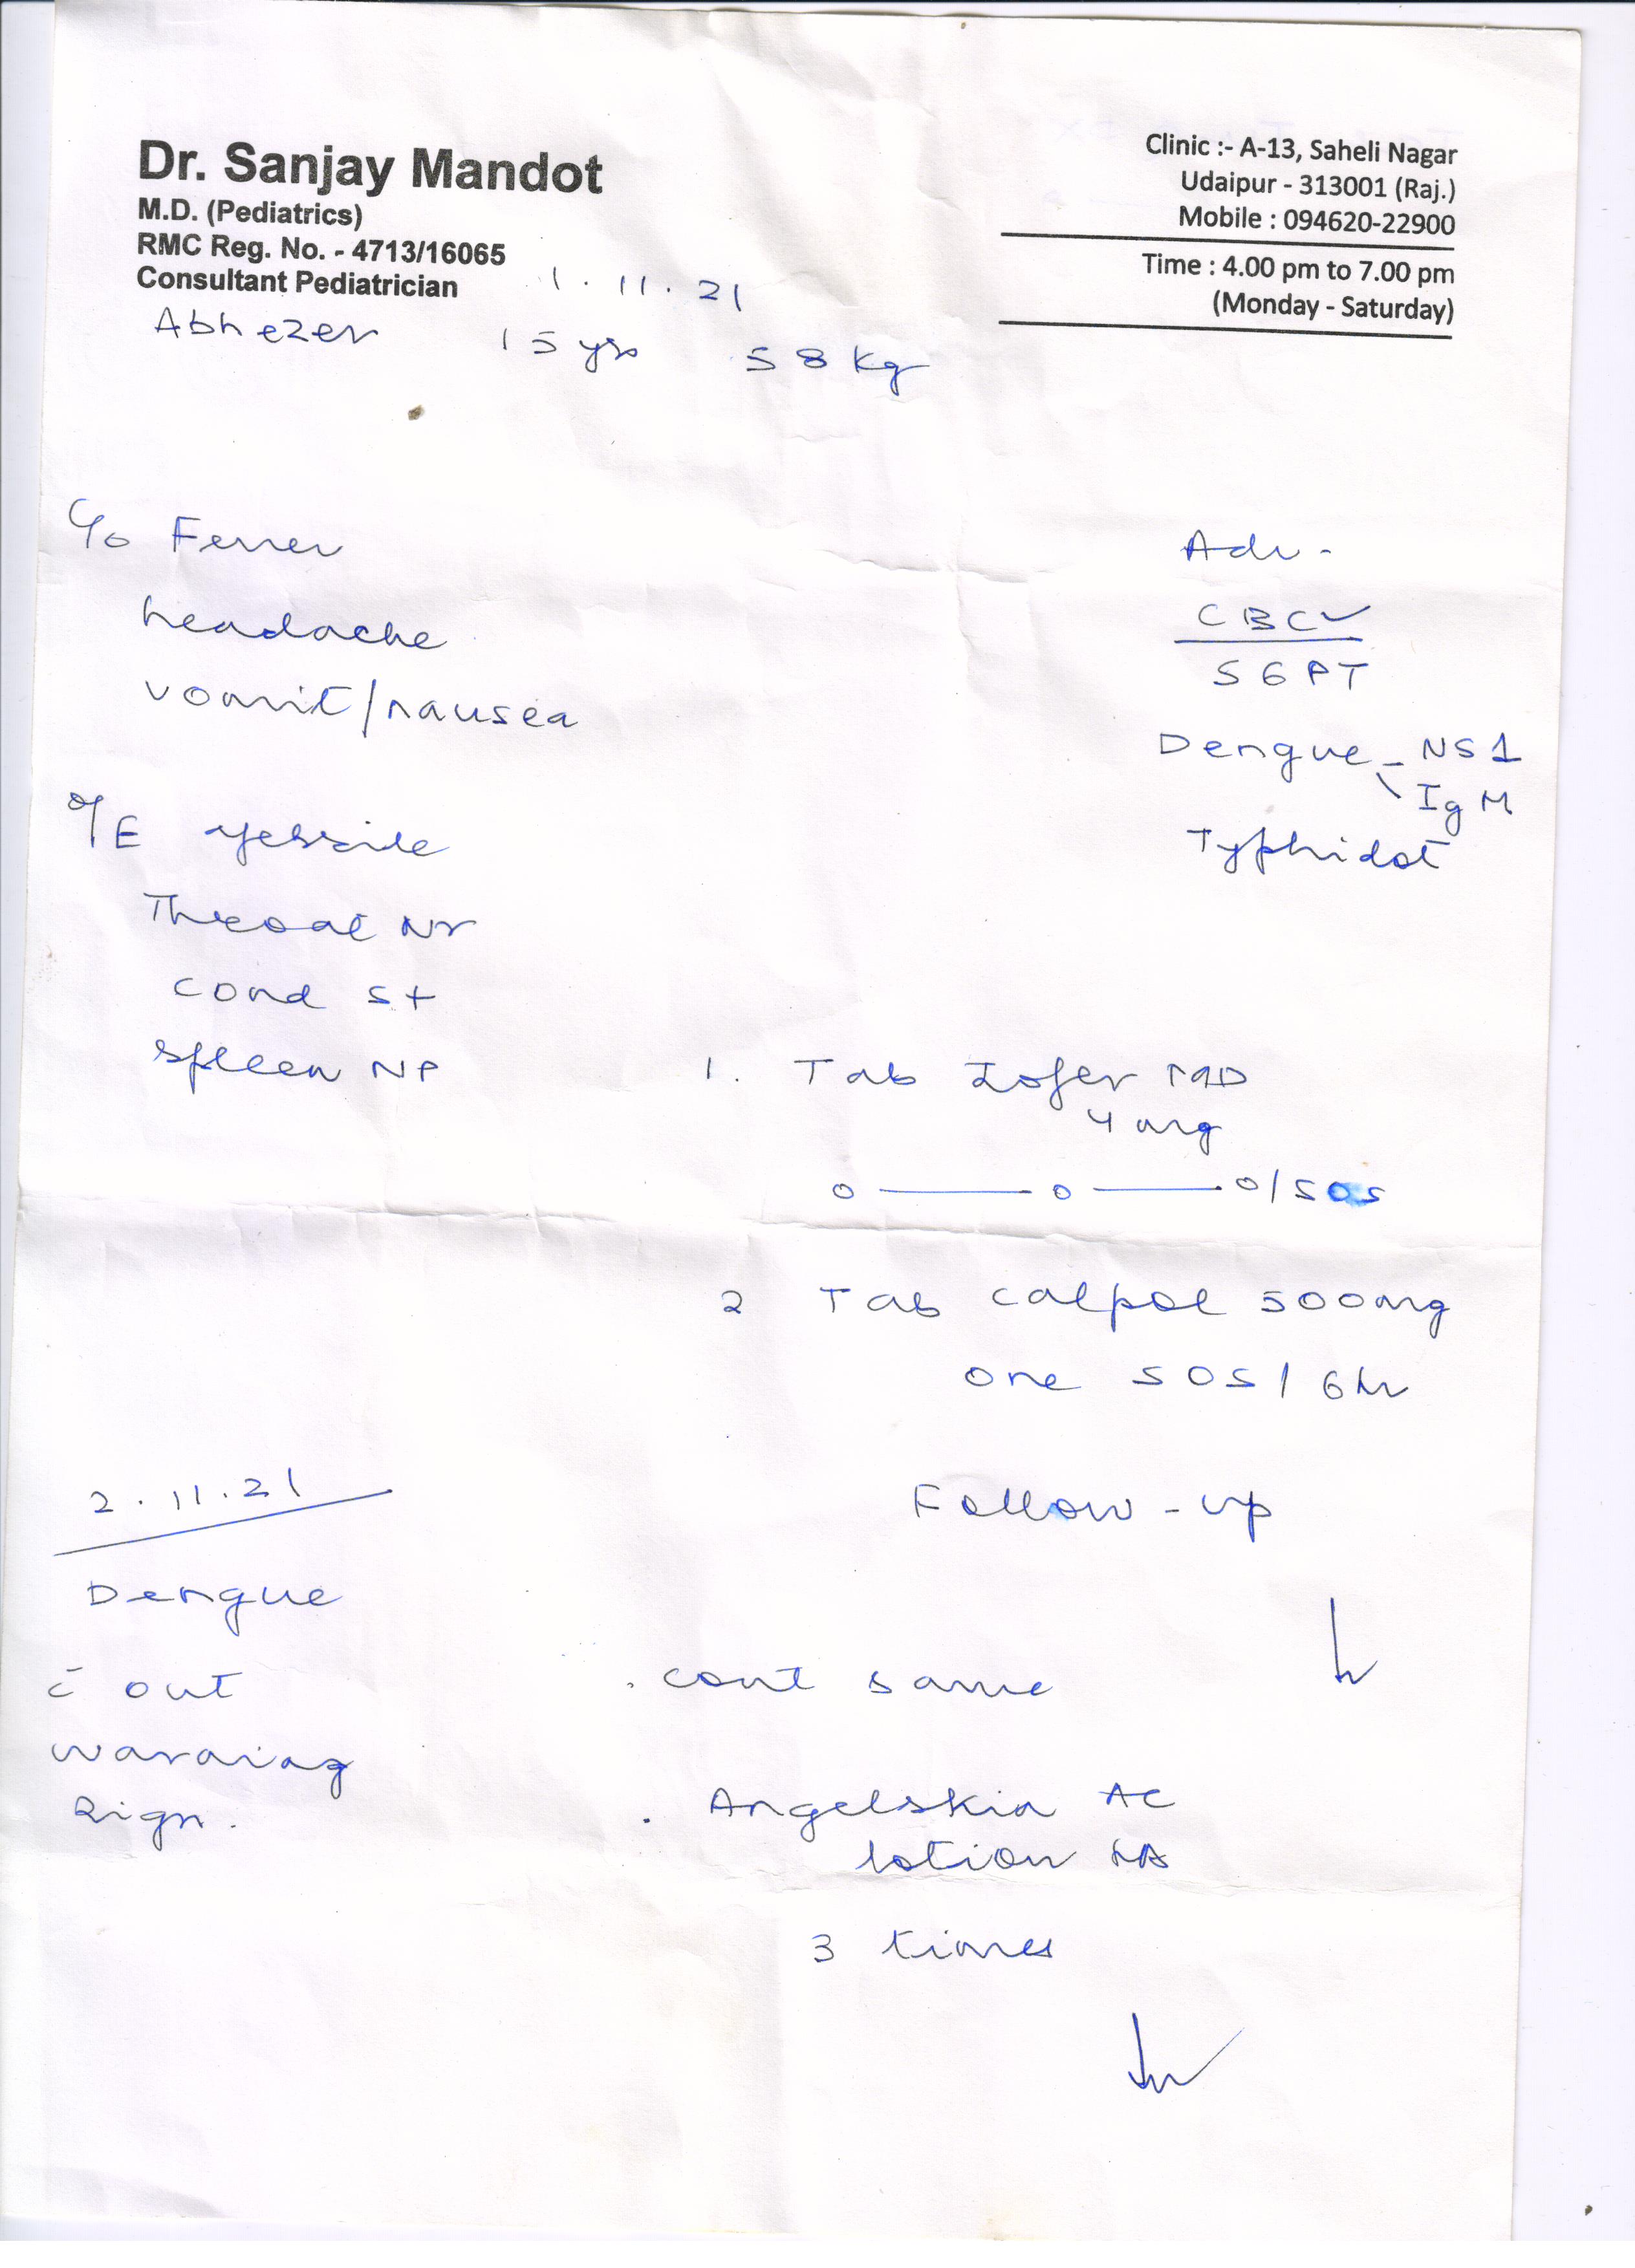 Dr. Sanjay Mandot
M.D. (Pediatrics)
RMC Reg. No. - 4713/16065
Consultant Pediatrician
Clinic :- A-13, Saheli Nagar
Udaipur - 313001 (Raj.)
Mobile : 094620-22900
Time : 4.00 pm to 7.00 pm
(Monday - Saturday)
1.11.21
Abhezer 15 yrs 58 kg
C/o Fever
headache
vomit/nausea
O/E febrile
Throat Nr
cond st
spleen NP
Adv -
CBC ✓
SGPT
Dengue - NS1
IgM
Typhidot
1. Tab Zofer MD
4 mg
0 — 0 — 0/SOS
2 Tab calpol 500mg
one SOS/6hr
Follow-up
2.11.21
Dengue
c̄ out
warning
sign.
. cont same
. Angelskin AC
lotion LA
3 times